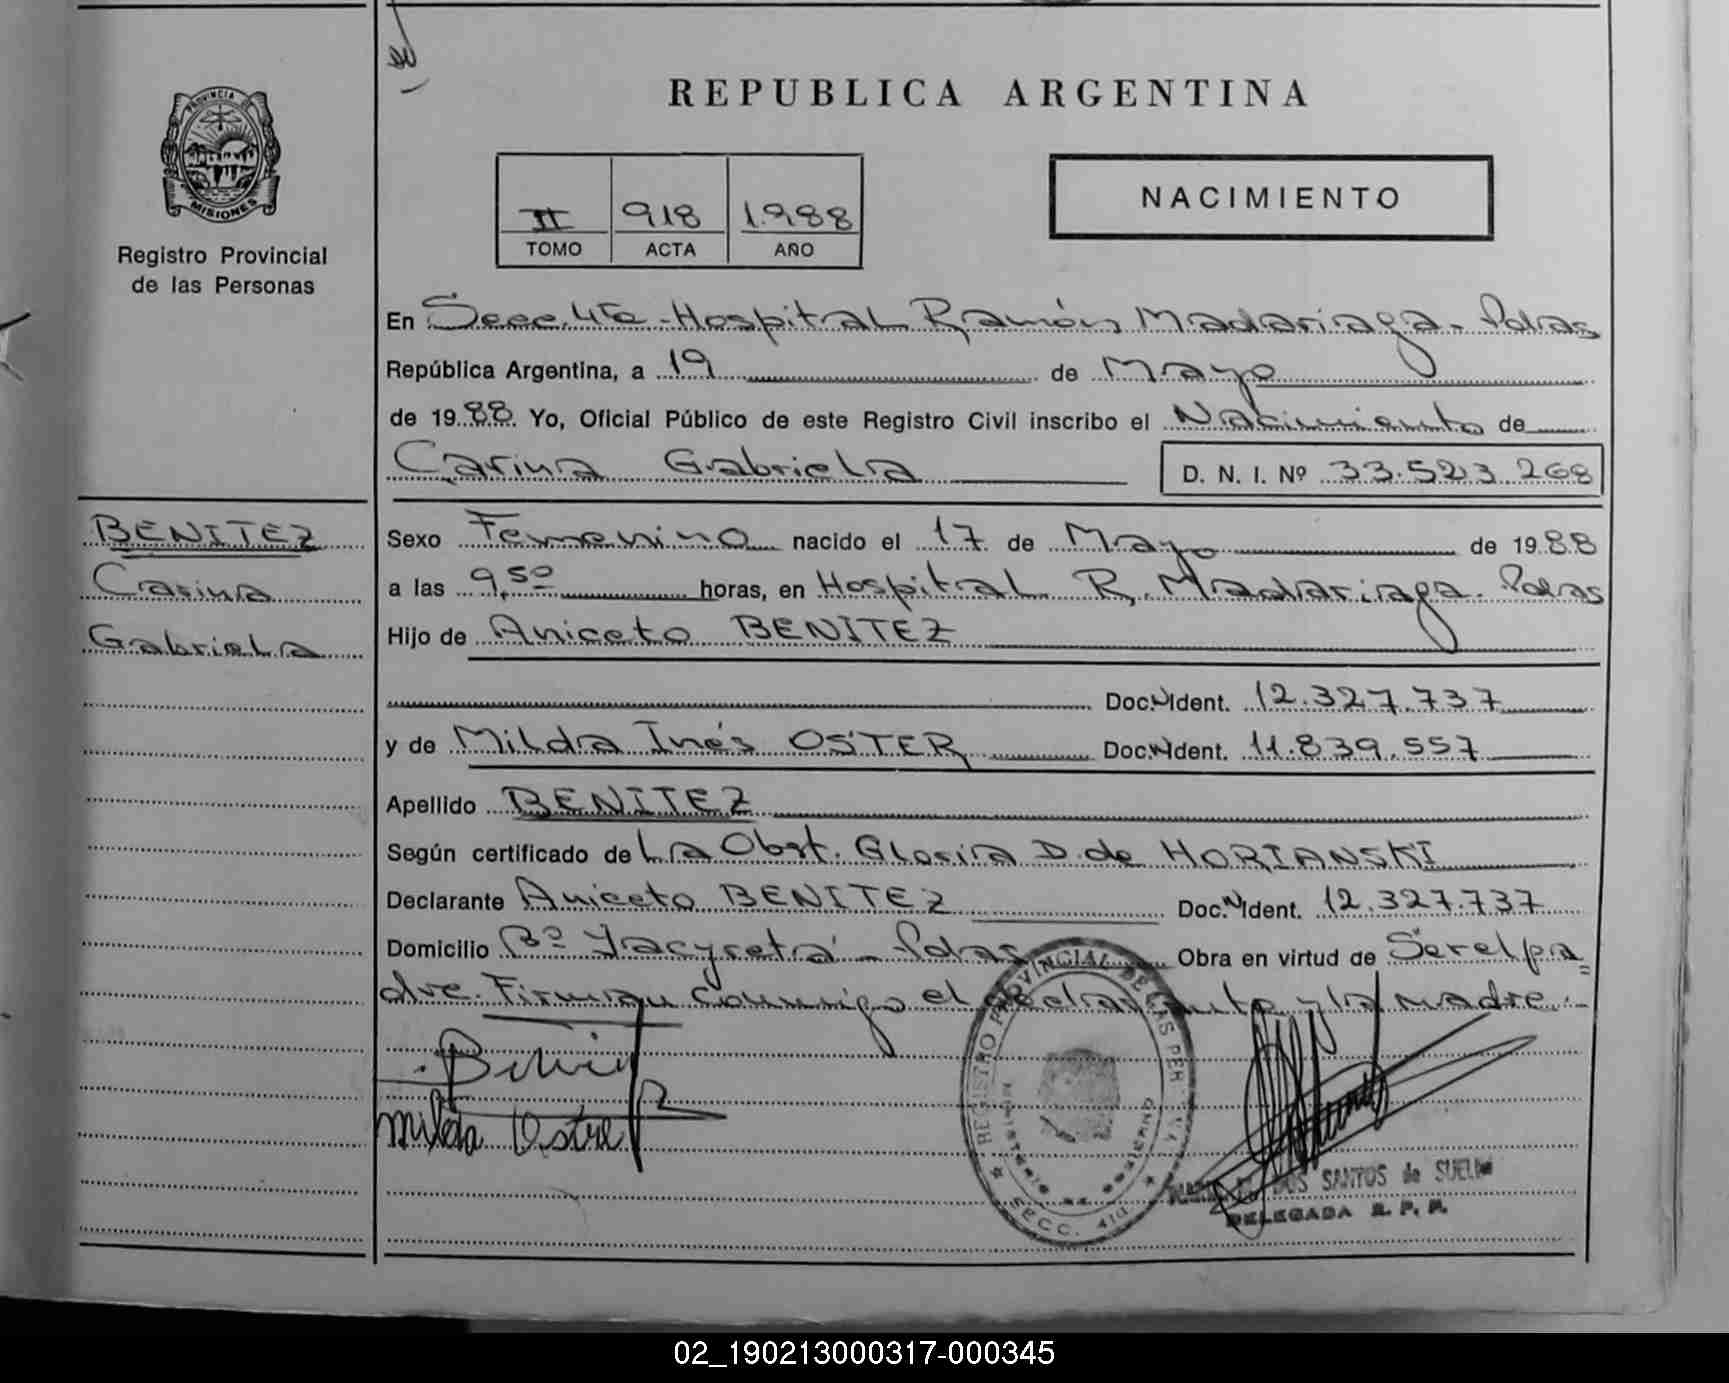 REPUBLICA ARGENTINA
PROVINCIA DE
MISIONES
Registro Provincial
de las Personas
II 918 1.988
TOMO ACTA AÑO
NACIMIENTO
En Secc. 4ta - Hospital Ramón Madariaga - Pdas
República Argentina, a 19 de Mayo
de 1988. Yo, Oficial Público de este Registro Civil inscribo el Nacimiento de
Carina Gabriela D. N. I. Nº 33.523.268
BENITEZ
Carina
Gabriela
Sexo Femenino nacido el 17 de Mayo de 1988
a las 9,50 horas, en Hospital R. Madariaga - Pdas
Hijo de Aniceto BENITEZ
Doc. N Ident. 12.327.737
y de Milda Inés OSTER Doc. N Ident. 11.839.557
Apellido BENITEZ
Según certificado de La Obst. Gloria D. de HORIANSKI
Declarante Aniceto BENITEZ Doc. N Ident. 12.327.737
Domicilio Bº Yacyreta - Pdas Obra en virtud de Ser el pa=
dre. Firman conmigo el declarante y la madre.-
Milda
REGISTRO PROVINCIAL DE LAS PER
MINISTERIO DE GOBIERNO
SECC. 4ta.
DOS SANTOS de
DELEGADA R. P. P.
02_190213000317-000345